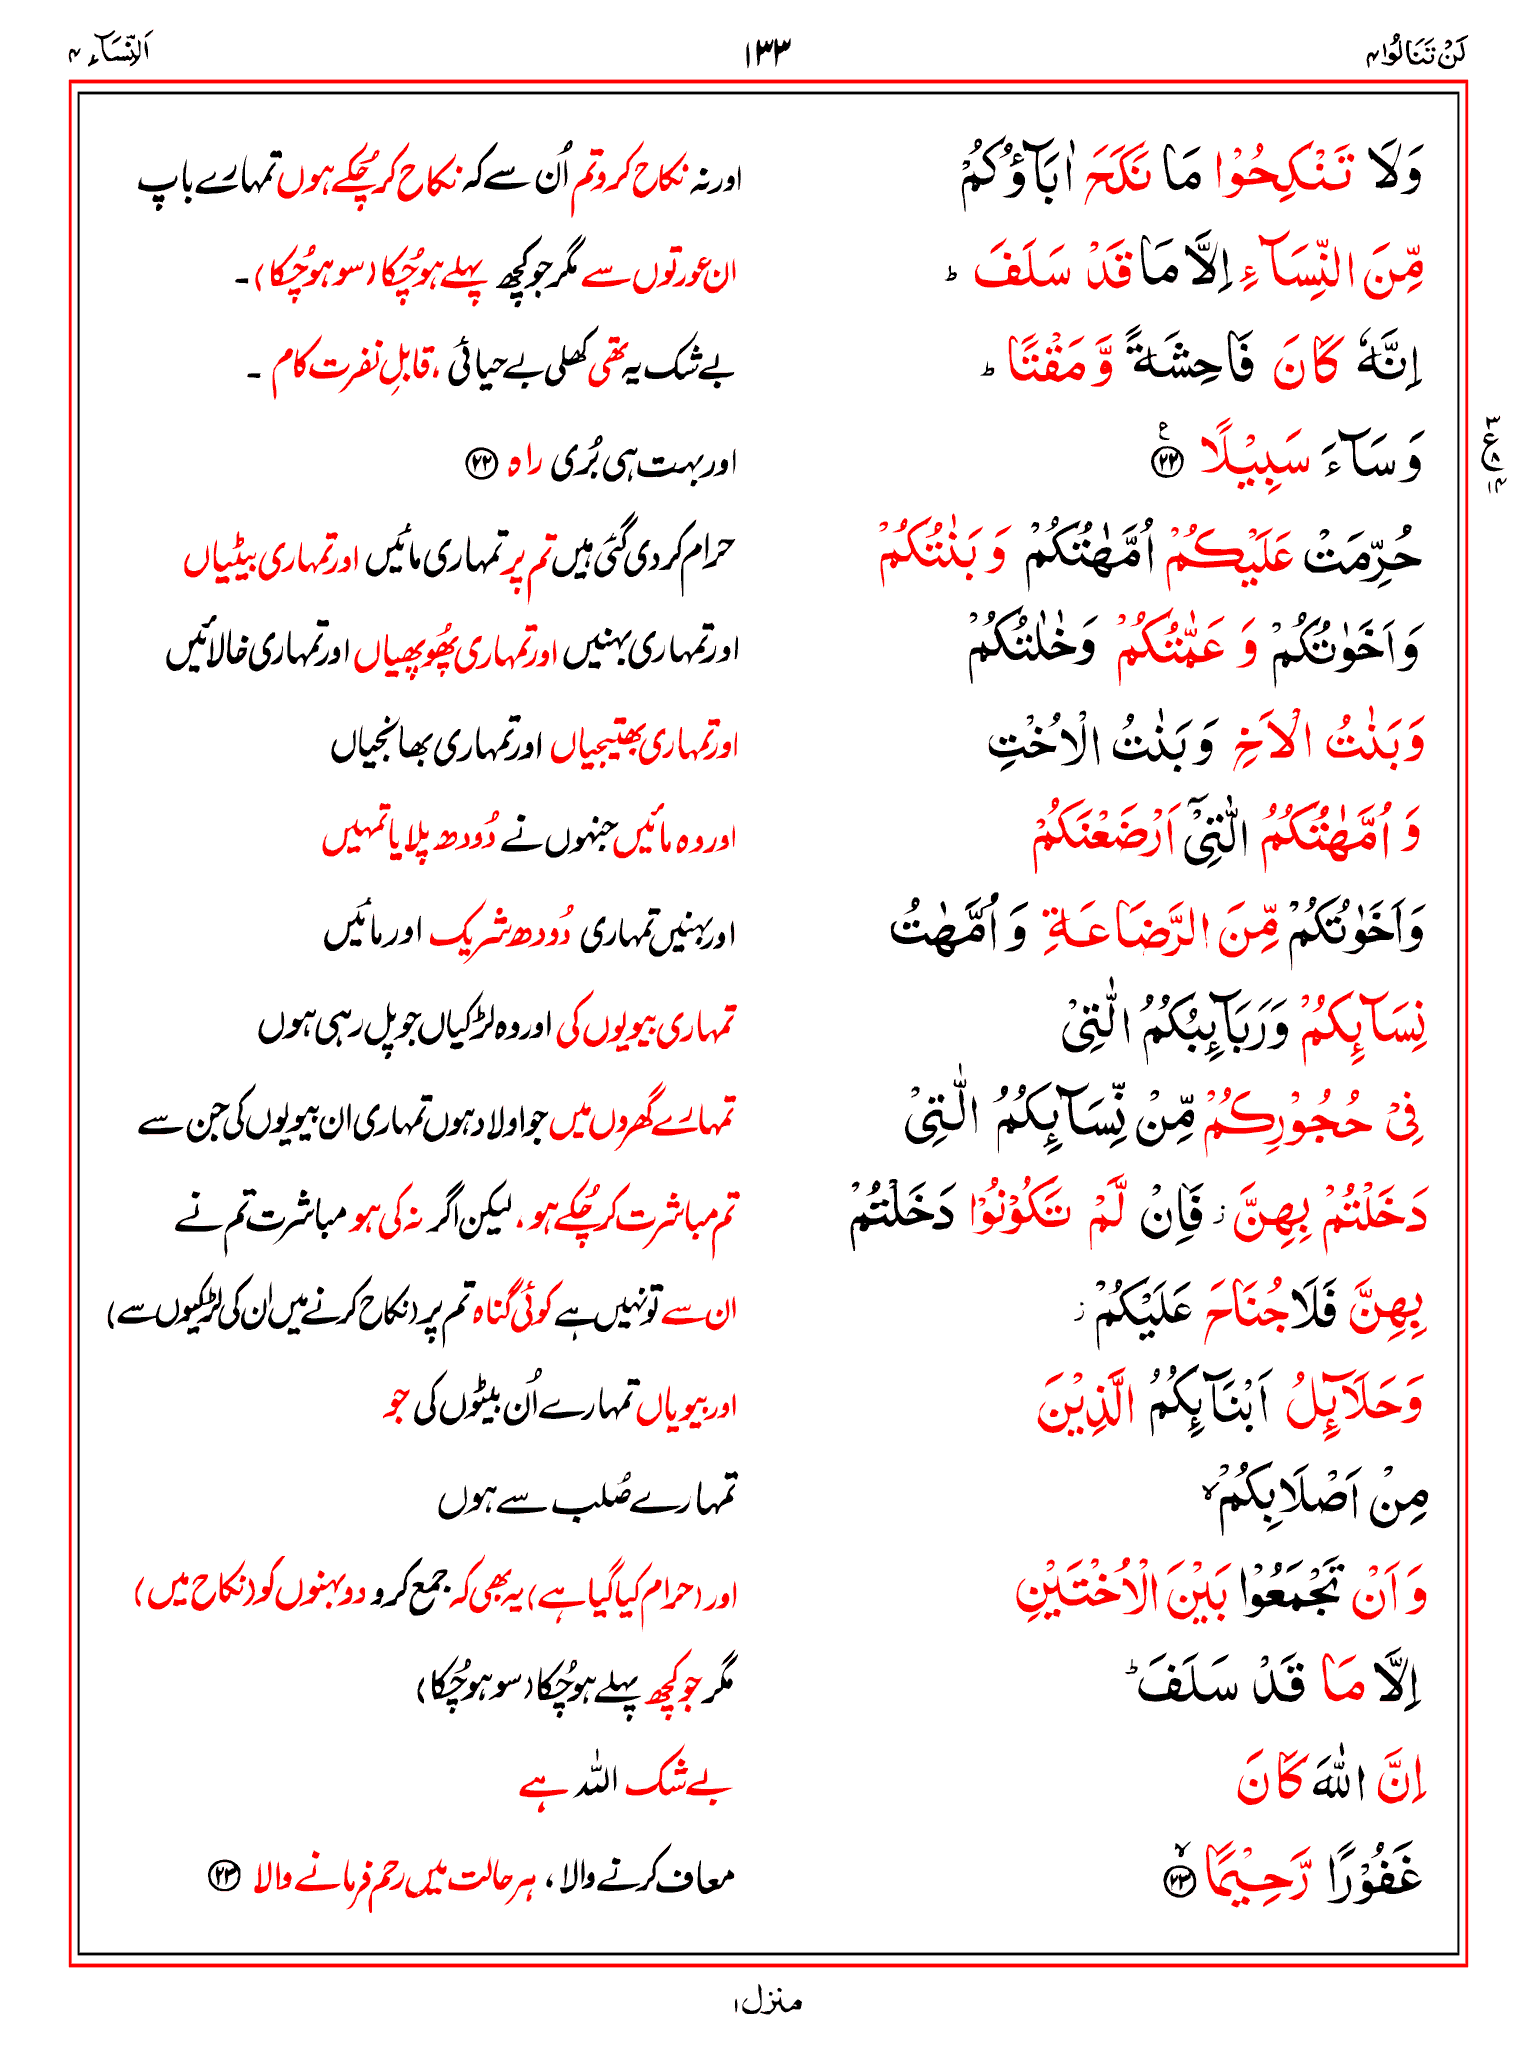 لَنْ تَنَالُوا ۴ ۱۳۳ اَلنِّسَآء ۴
وَلَا تَنْكِحُوْا مَا نَكَحَ اٰبَآؤُكُمْ اور نہ نکاح کرو تم اُن سے کہ نکاح کر چُکے ہوں تمہارے باپ
مِّنَ النِّسَآءِ اِلَّا مَا قَدْ سَلَفَ ؕ ان عورتوں سے مگر جو کچھ پہلے ہو چُکا (سو ہو چُکا)۔
اِنَّهٗ كَانَ فَاحِشَةً وَّ مَقْتًا ؕ بے شک یہ تھی کھلی بے حیائی، قابلِ نفرت کام ۔
وَ سَآءَ سَبِيْلًا ۲۲ اور بہت ہی بُری راہ ۲۲
ع ۳ ۸ ۱۴
حُرِّمَتْ عَلَيْكُمْ اُمَّهٰتُكُمْ وَ بَنٰتُكُمْ حرام کر دی گئی ہیں تم پر تمہاری مائیں اور تمہاری بیٹیاں
وَ اَخَوٰتُكُمْ وَ عَمّٰتُكُمْ وَ خٰلٰتُكُمْ اور تمہاری بہنیں اور تمہاری پُھوپھیاں اور تمہاری خالائیں
وَ بَنٰتُ الْاَخِ وَ بَنٰتُ الْاُخْتِ اور تمہاری بھتیجیاں اور تمہاری بھانجیاں
وَ اُمَّهٰتُكُمُ الّٰتِيْۤ اَرْضَعْنَكُمْ اور وہ مائیں جنہوں نے دُودھ پلایا تمہیں
وَ اَخَوٰتُكُمْ مِّنَ الرَّضَاعَةِ وَ اُمَّهٰتُ اور بہنیں تمہاری دُودھ شریک اور مائیں
نِسَآىِٕكُمْ وَ رَبَآىِٕبُكُمُ الّٰتِيْ تمہاری بیویوں کی اور وہ لڑکیاں جو پل رہی ہوں
فِيْ حُجُوْرِكُمْ مِّنْ نِّسَآىِٕكُمُ الّٰتِيْ تمہارے گھروں میں جو اولاد ہوں تمہاری ان بیویوں کی جن سے
دَخَلْتُمْ بِهِنَّ ؗ فَاِنْ لَّمْ تَكُوْنُوْا دَخَلْتُمْ تم مباشرت کر چُکے ہو، لیکن اگر نہ کی ہو مباشرت تم نے
بِهِنَّ فَلَا جُنَاحَ عَلَيْكُمْ ؗ ان سے تو نہیں ہے کوئی گناہ تم پر (نکاح کرنے میں اُن کی لڑکیوں سے)
وَ حَلَآىِٕلُ اَبْنَآىِٕكُمُ الَّذِيْنَ اور بیویاں تمہارے اُن بیٹوں کی جو
مِنْ اَصْلَابِكُمْ ۙ تمہارے صُلب سے ہوں
وَ اَنْ تَجْمَعُوْا بَيْنَ الْاُخْتَيْنِ اور (حرام کیا گیا ہے) یہ بھی کہ جمع کرو دو بہنوں کو (نکاح میں)
اِلَّا مَا قَدْ سَلَفَ ؕ مگر جو کچھ پہلے ہو چُکا (سو ہو چُکا)
اِنَّ اللّٰهَ كَانَ بے شک اللہ ہے
غَفُوْرًا رَّحِيْمًا ۲۳ معاف کرنے والا، ہر حالت میں رحم فرمانے والا ۲۳
منزل ۱